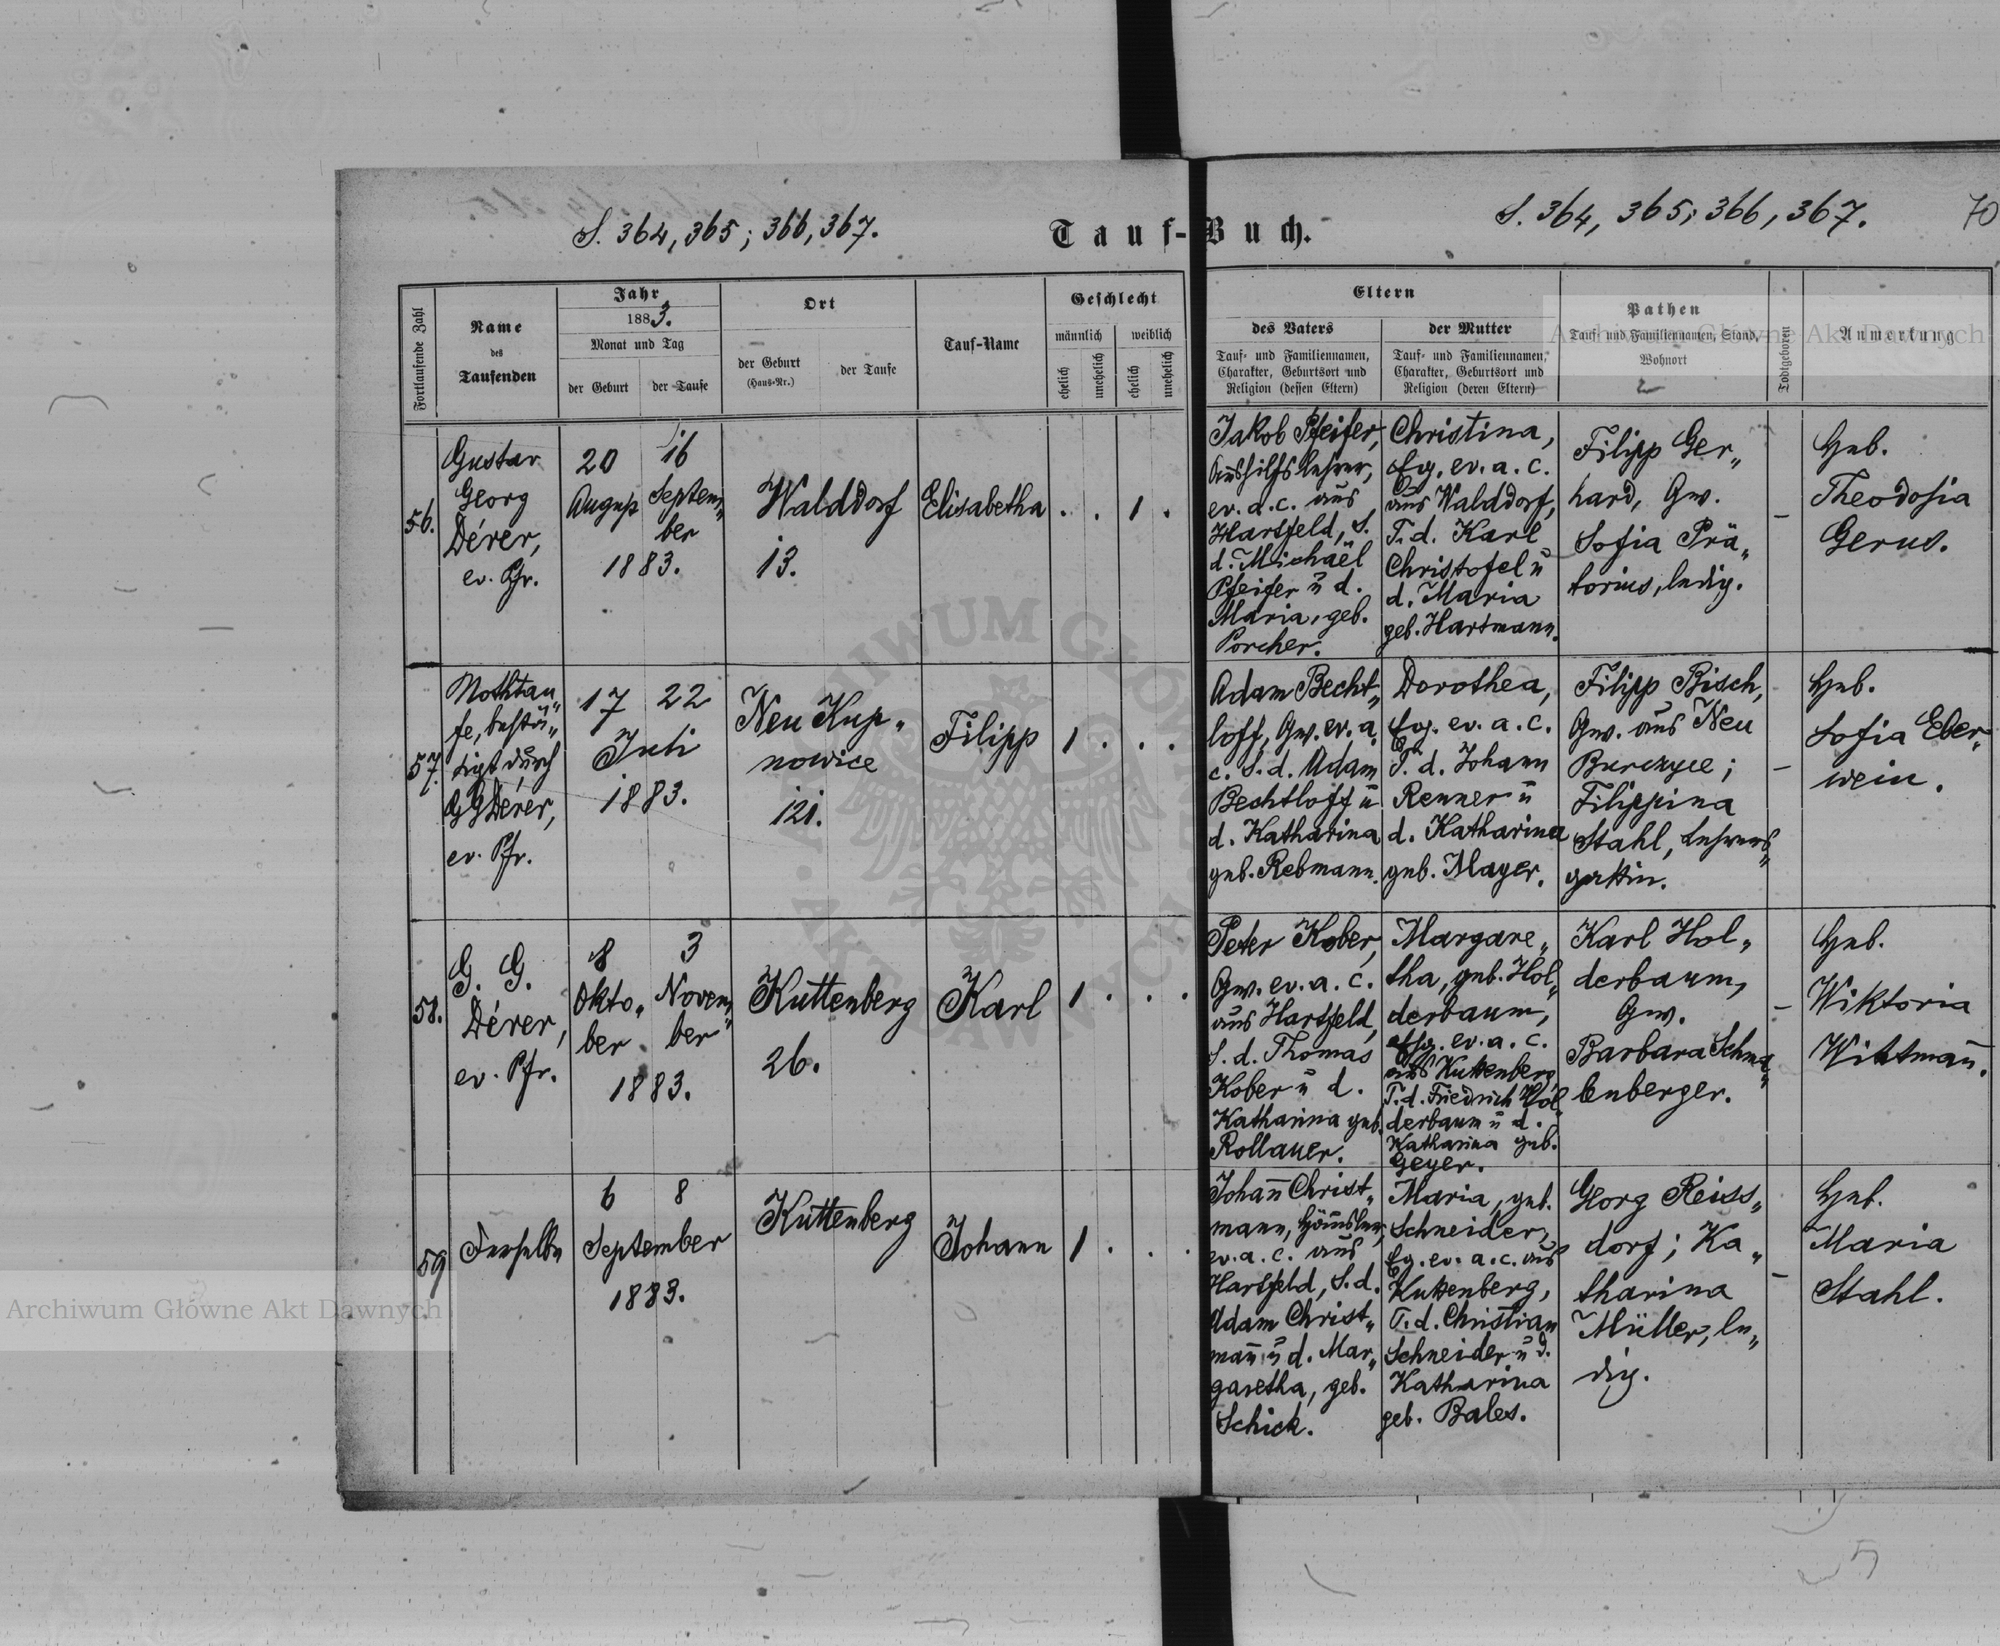 S. 364, 365; 366, 367.
Tauf-Buch.
S. 364, 365; 366, 367.
70
Fortlaufende Zahl
Name
des
Taufenden
Jahr
1883.
Monat und Tag
der Geburt
der Taufe
Ort
der Geburt
(Haus-Nr.)
der Taufe
Tauf-Name
Geschlecht
männlich
weiblich
ehelich
unehelich
ehelich
unehelich
Eltern
des Vaters
Tauf- und Familiennamen,
Charakter, Geburtsort und
Religion (dessen Eltern)
der Mutter
Tauf- und Familiennamen,
Charakter, Geburtsort und
Religion (deren Eltern)
Pathen
Tauf- und Familiennamen, Stand,
Wohnort
Todtgeboren
Anmerkung
56.
Gustav
Georg
Dérer,
ev. Pfr.
20
August
16
Septem„
ber
1883.
Walddorf
13.
Elisabetha
. . 1 .
Jakob Pfeifer,
Aushilfslehrer,
ev. a. c. aus
Hartfeld, S.
d. Michael
Pfeifer u d.
Maria, geb.
Porcher.
Christina,
Eg. ev. a. c.
aus Walddorf,
T. d. Karl
Christofel u
d. Maria
geb. Hartmann.
Filipp Ger„
hard, Gw.
Sofia Prä„
torius, ledig.
–
Heb.
Theodosia
Gerus.
57.
Nothtau„
fe, bestä„
tigt durch
GGDérer,
ev. Pfr.
17
22
Juli
1883.
Neu Kup„
nowice
121.
Filipp
1 . . .
Adam Becht„
loff, Gw. ev. a.
c. S. d. Adam
Bechtloff u
d. Katharina
geb. Rebmann.
Dorothea,
Eg. ev. a. c.
T. d. Johann
Renner u
d. Katharina
geb. Mayer.
Filipp Bisch,
Gw. aus Neu
Burczyce;
Filippina
Stahl, Lehrers„
gattin.
–
Heb.
Sofia Eber„
wein.
58.
G. G.
Dérer,
ev. Pfr.
8
Okto„
ber
3
Novem„
ber
1883.
Kuttenberg
26.
Karl
1 . . .
Peter Kober,
Gw. ev. a. c.
aus Hartfeld,
S. d. Thomas
Kober u d.
Katharina geb.
Rollauer.
Margare„
tha, geb. Hol„
derbaum,
ev. a. c.
aus Kuttenberg,
T. d. Friedrich Hol„
derbaum u d.
Katharina geb.
Geyer.
Karl Hol„
derbaum,
Gw.
Barbara Schma„
lenberger.
–
Heb.
Wiktoria
Wittmañ.
59
Derselbe
6
8
September
1883.
Kuttenberg
Johann
1 . . .
Johañ Christ„
mann, Häusler,
ev. a. c. aus
Hartfeld, S. d.
Adam Christ„
mañ u d. Mar„
garetha, geb.
Schick.
Maria, geb.
Schneider,
Eg. ev. a. c. aus
Kuttenberg,
T. d. Christian
Schneider u d.
Katharina
geb. Bales.
Georg Reiss„
dorf; Ka„
tharina
Müller, le„
dig.
–
Heb.
Maria
Stahl.
Archiwum Główne Akt Dawnych
Archiwum Główne Akt Dawnych
ARCHIWUM GŁÓWNE AKT DAWNYCH